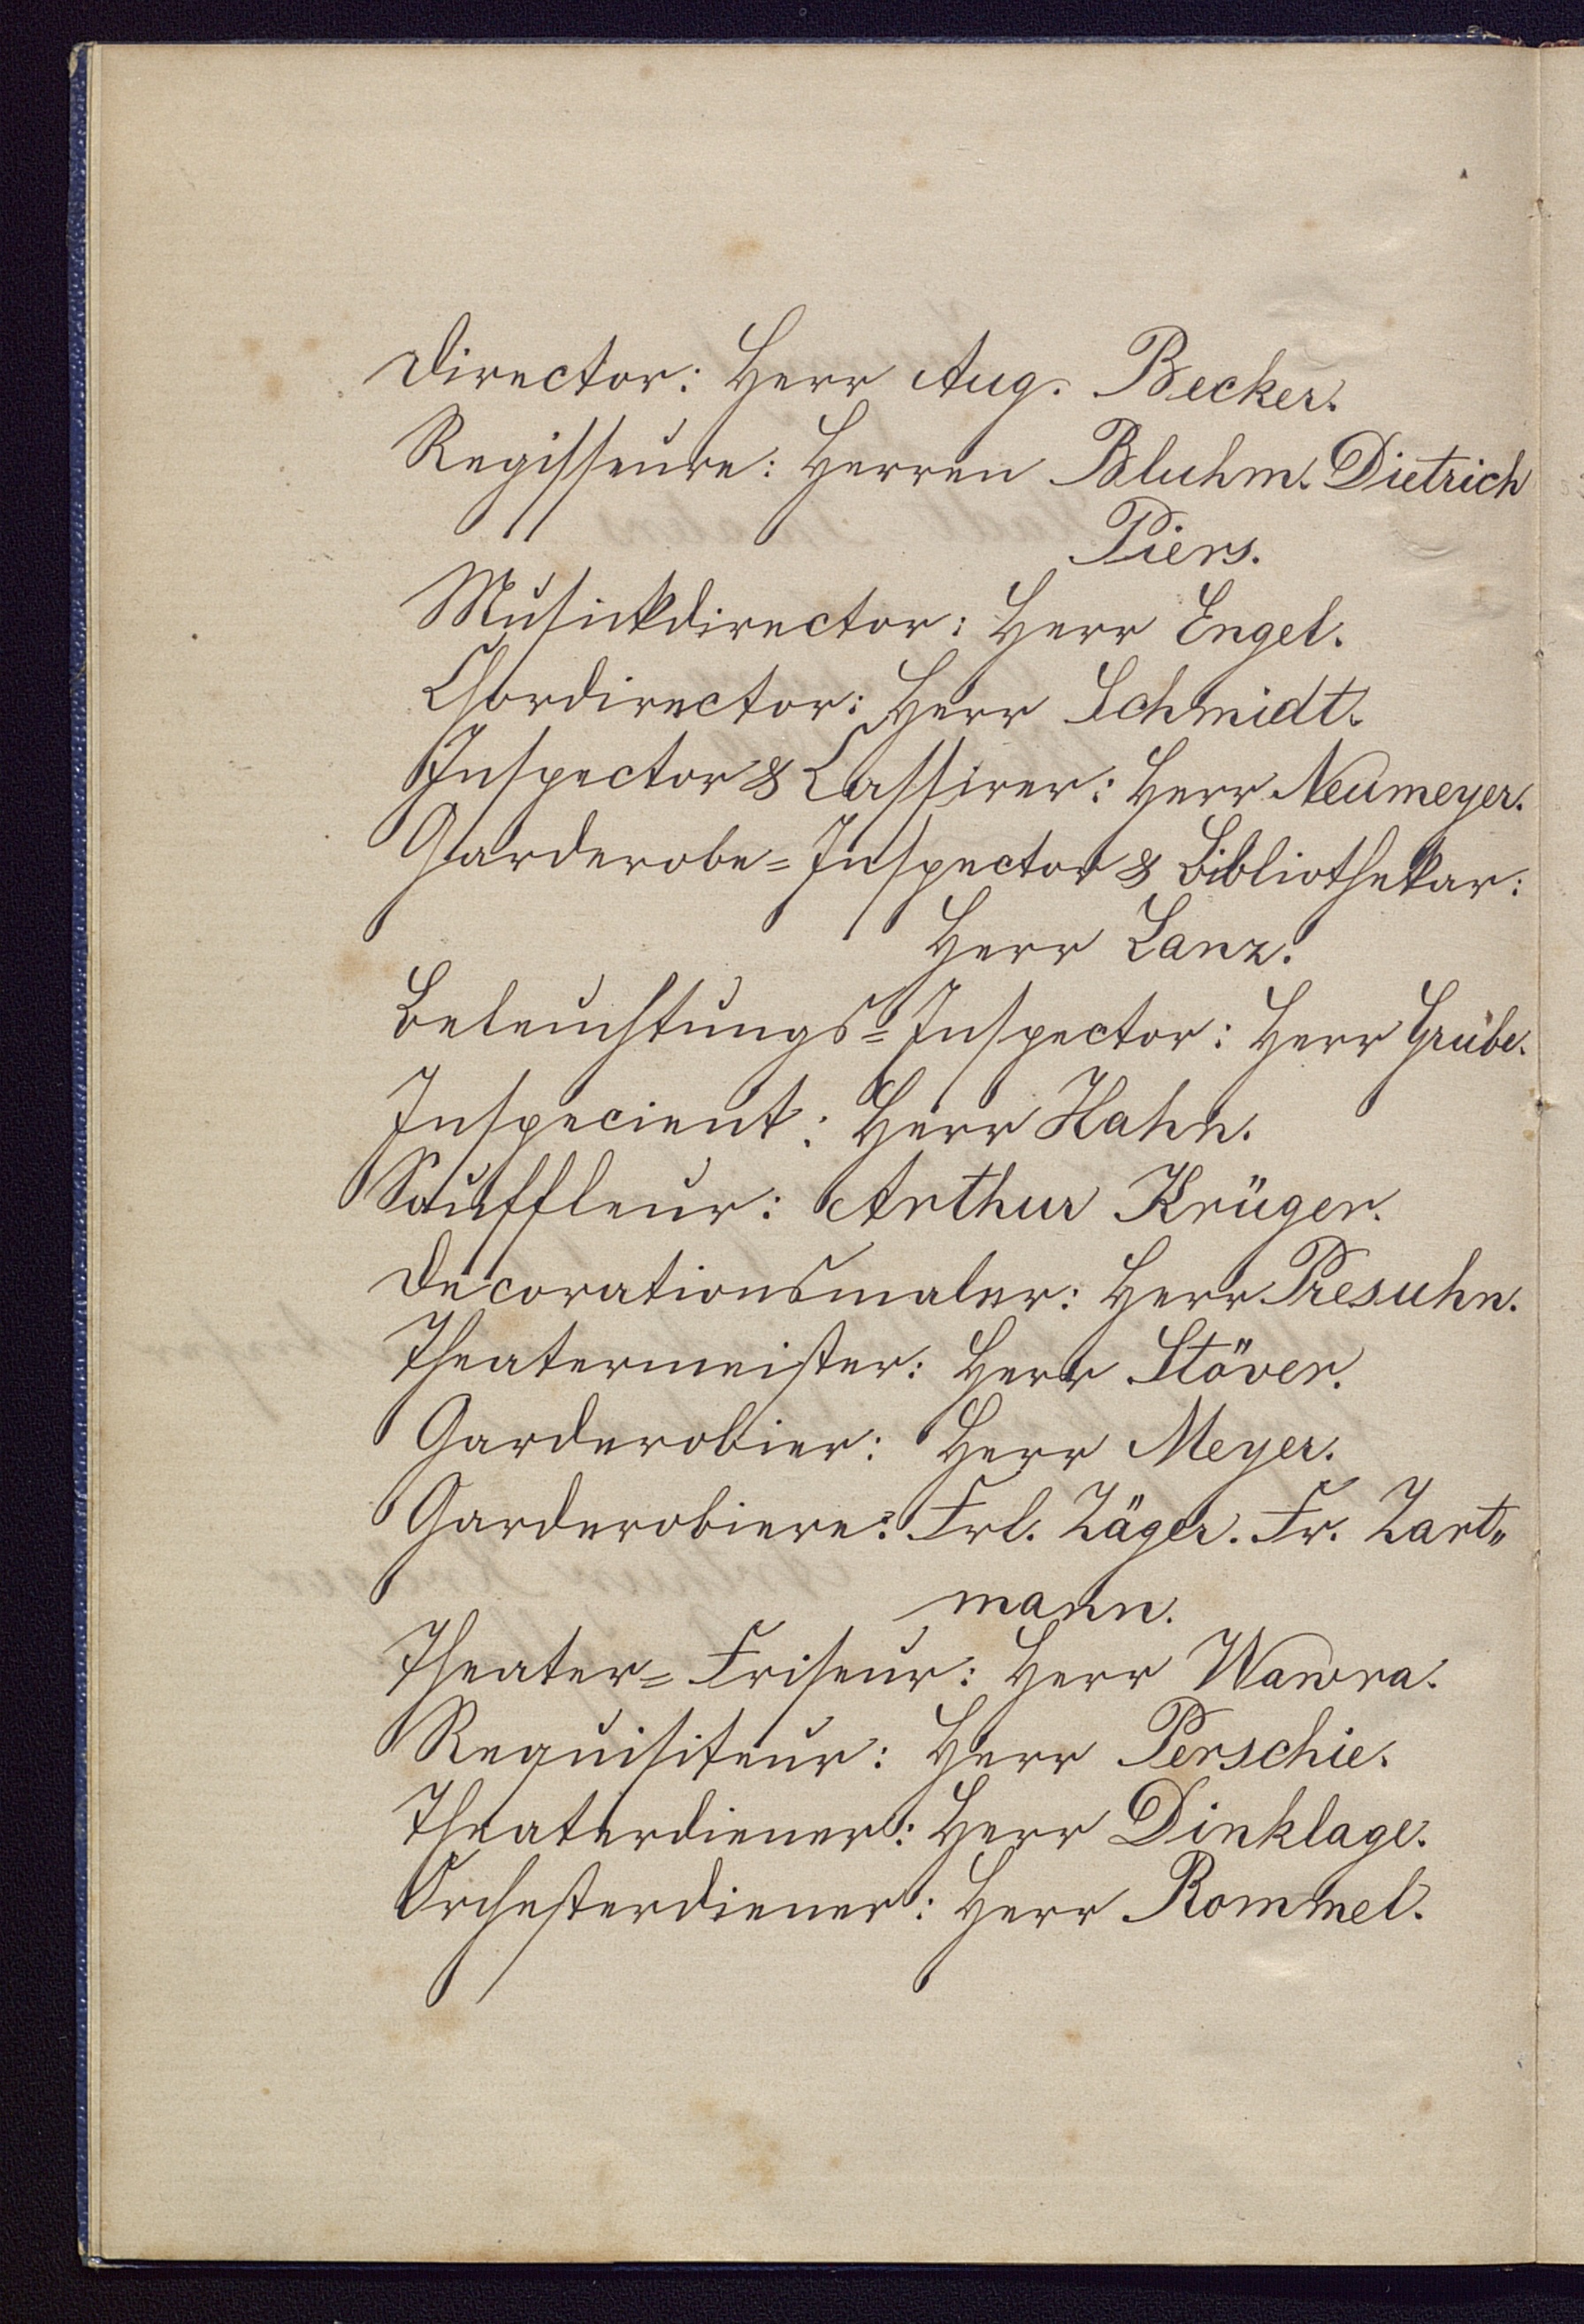 Director: Herr Aug. Becker.
Regisseure: Herren Bluhm. Dietrich
Piers.
Musickdirector: Herr Engel.
Chordirector: Herr Schmidt.
Inspector & Cassirer: Herr Neumeyer.
Garderobe=Inspector & Bibliothekar:
Herr Lanz.
Beleuchtungs=Inspector: Herr Grube.
Inspecient: Herr Hahn.
Souffleur: Arthur Krüger.
Decorationsmaler: Herr Presuhn.
Theatermeister: Herr Stöver.
Garderobier: Herr Meyer.
Garderobiere: Frl. Zäger. Fr. Zart„
mann.
Theater=Friseur: Herr Wawra.
Requisiteur: Herr Perschie.
Theaterdiener: Herr Dinklage.
Orchesterdiener: Herr Rommel.